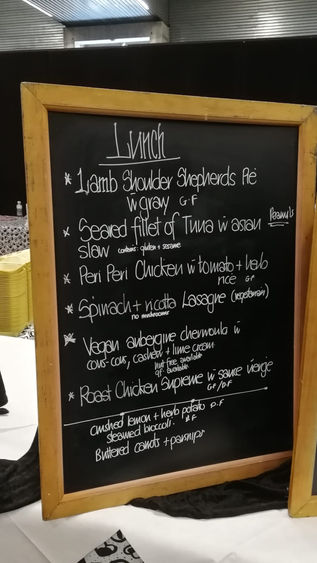 Lunch
* Lamb Shoulder Shepherds Pie
w gray G.F
* Seared fillet of Tuna w asian Peanuts
slaw contains: gluten + sesame
* Peri Peri Chicken w tomato + herb
rice GF
* Spinach + ricotta Lasagne (vegetarian)
no mushrooms
* Vegan aubergine chermoula w
cous-cous, cashew + lime cream
nut free available
gf available
* Roast Chicken Supreme w sauce vierge
GF/DF
crushed lemon + herb potato D.F
steamed broccoli.
Buttered carrots + parsnips